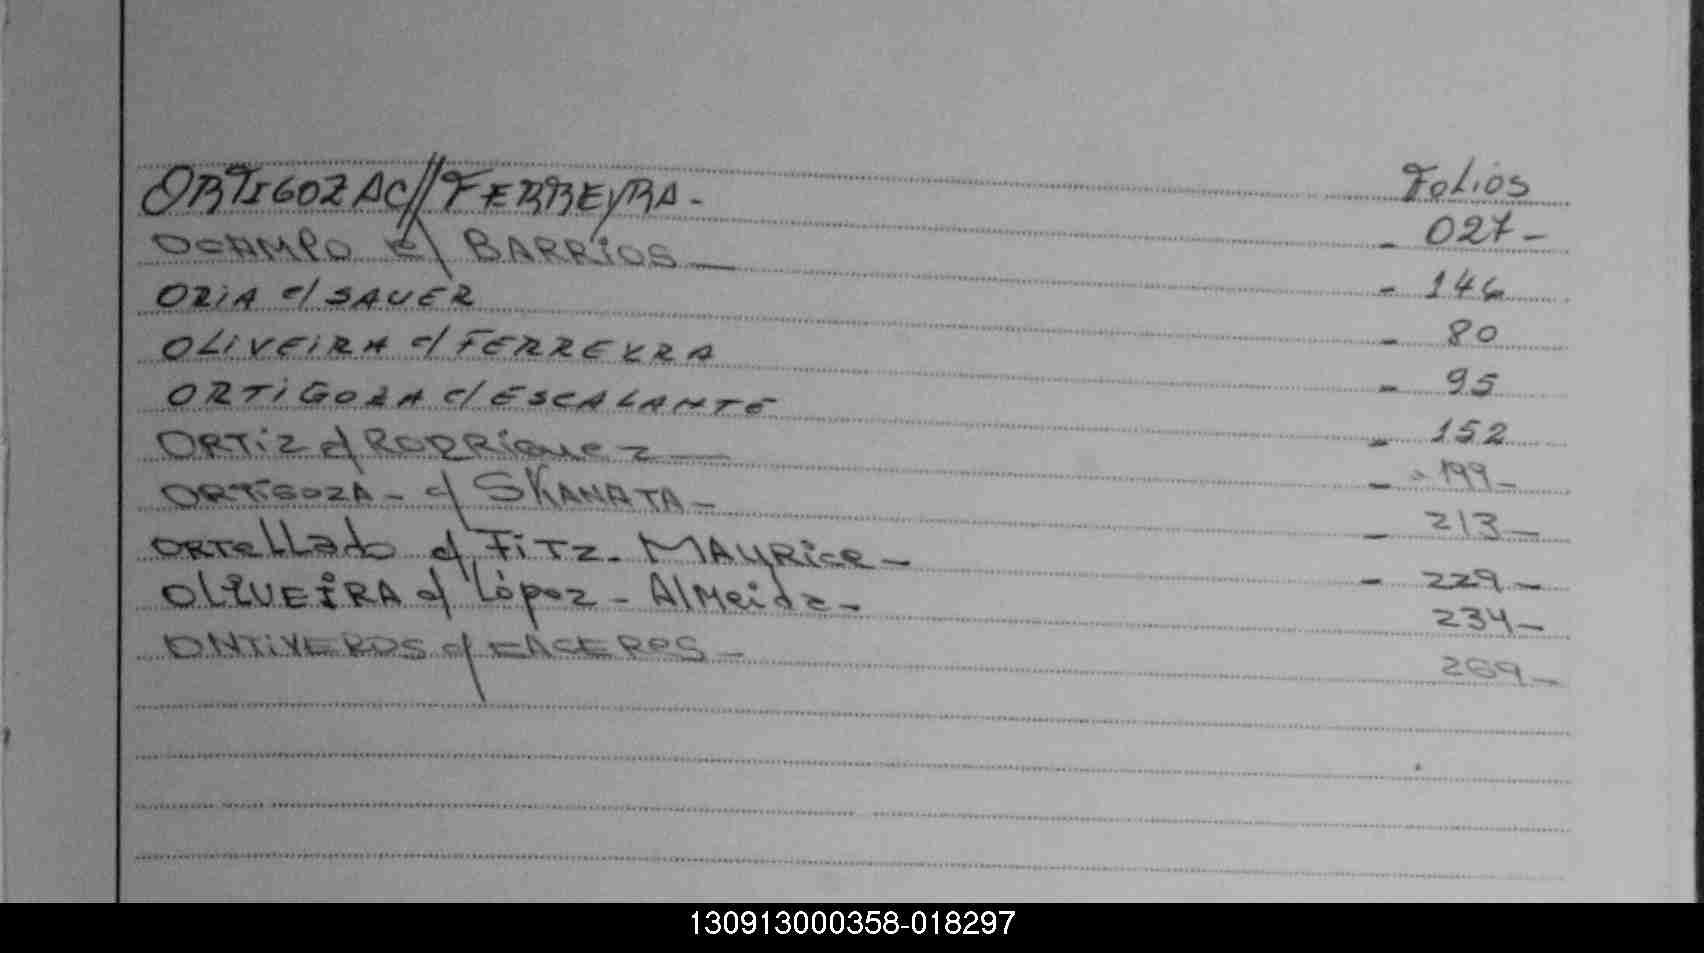 Folios
ORTIGOZA C// FERREYRA - 027 -
OCAMPO c/ BARRIOS - 146
ORIA c/ SAUER - 80
OLIVEIRA c/ FERREYRA - 95
ORTIGOZA c/ ESCALANTE - 152
ORTIZ c/ RODRIGUEZ - 199 -
ORTIGOZA - c/ SKANATA - 213 -
ORTELLADO c/ FITZ - MAURICE - 229 -
OLIVEIRA c/ López - Almeida - 234 -
ONTIVEROS c/ - 269 -
130913000358-018297